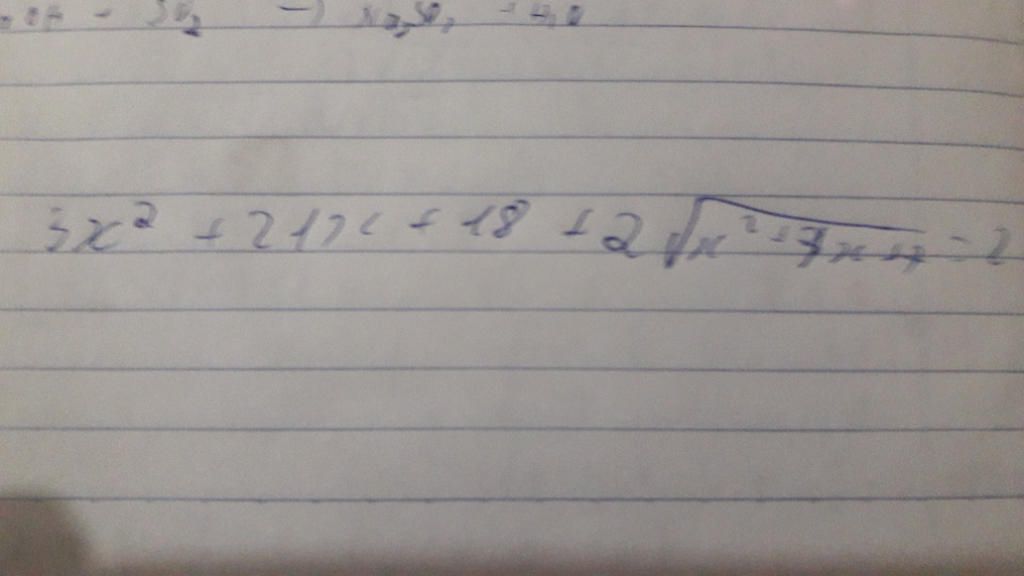 OH + SO₂ → Na₂SO₃ + H₂O
3x² + 21x + 18 + 2√(x² + 7x + 7) = 2